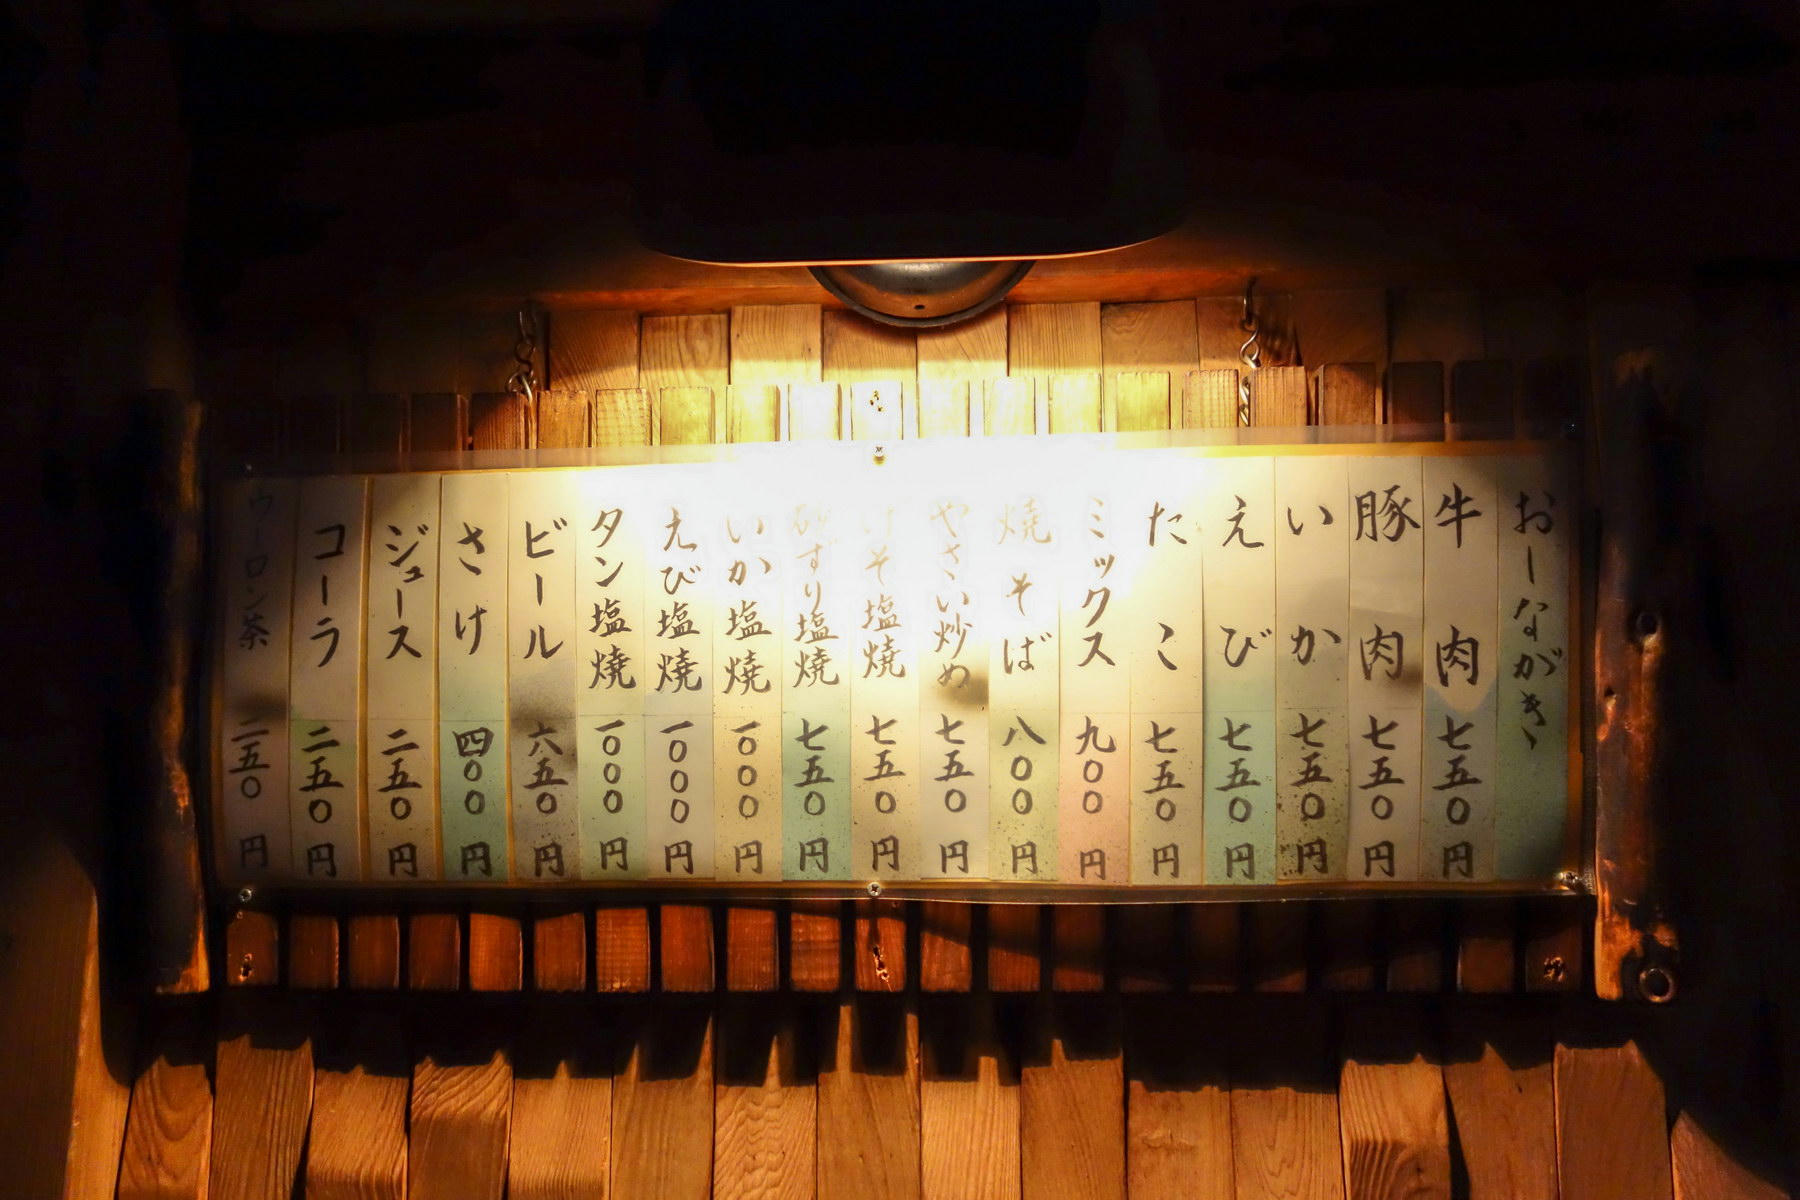 おしながき
牛肉 七五〇円
豚肉 七五〇円
いか 七五〇円
えび 七五〇円
たこ 七五〇円
ミックス 九〇〇円
焼そば 八〇〇円
やさい炒め 七五〇円
けそ塩焼 七五〇円
砂ずり塩焼 七五〇円
いか塩焼 一〇〇〇円
えび塩焼 一〇〇〇円
タン塩焼 一〇〇〇円
ビール 六五〇円
さけ 四〇〇円
ジュース 二五〇円
コーラ 二五〇円
ウーロン茶 二五〇円